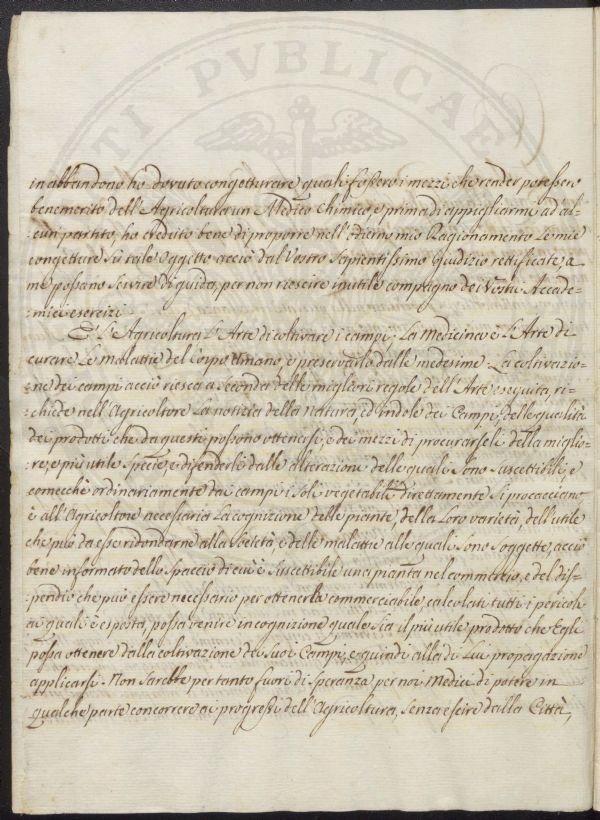 TI PVBLICAE
in abbandono ho dovuto congetturare quali fossero i mezzi che render potessero
benemerito dell'Agricoltura un Medico Chimico, e prima di appigliarmi ad al-
cun partito, ho creduto bene di proporre nell'odierno mio Ragionamento le mie
congetture sù tale oggetto acciò dal Vostro Sapientissimo Giudizio rettificate, a
me possano servire di guida, per non riescire inutile compagno dei Vostri Accade-
mici esercizi.
È L'Agricoltura L'Arte di coltivare i campi, La Medicina è L'Arte di
curare Le Malattie del Corpo Umano, e preservarlo dalle medesime. La coltivazio-
ne dei campi acciò riesca a Seconda delle migliori regole dell'Arte eseguita, ri-
chiede nell'Agricoltore La notizia della natura, ed indole dei Campi, delle qualità
dei prodotti che da questi possono ottenersi, e dei mezzi di procurarseli della miglio-
re, e più utile Specie, e difenderli dalle alterazioni delle quali Sono Suscettibili, e
comecchè ordinariamente dai campi i Soli vegetabili direttamente Si procacciano
è all'Agricoltore necessaria La cognizione delle piante, della Loro varietà, dell'utile
che può da esse ridondarne alla Società, e delle malattie alle quali Sono Soggette, acciò
bene informato dello Spaccio di cui è Suscettibile una pianta nel commercio, e del dis-
pendio che può essere necessario per ottenerla commerciabile, calcolati tutti i pericoli
ai quali è esposta, possa venire in cognizione quale Sia il più utile prodotto che Egli
possa ottenere dalla coltivazione de Suoi Campi, e quindi alla di Lui propagazione
applicarsi. Non Sarebbe pertanto fuori di Speranza per noi Medici di potere in
qualche parte concorrere ai progressi dell'Agricoltura, Senza escire dalla Città,